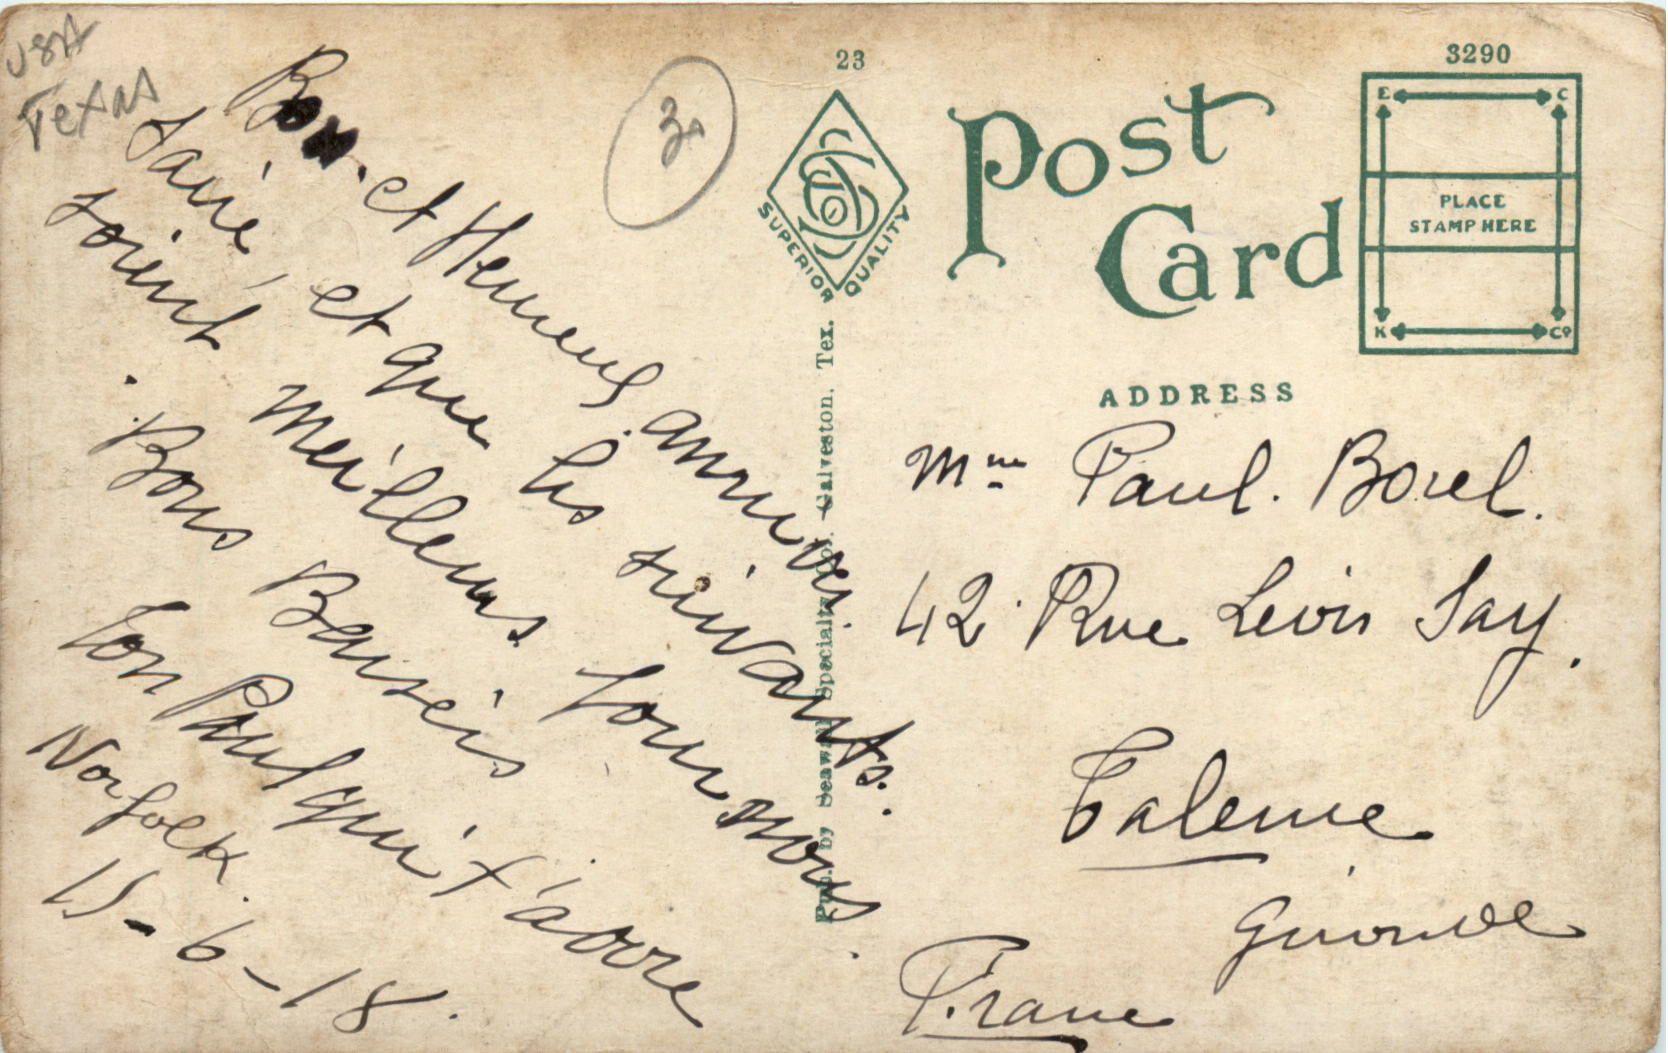 USA
Texas
Bon. et Heureux anniver.
saire et que les suivants.
soient meilleurs pour nous.
Bons Baisers
ton Paul qui t'adore
Norfolk.
15-6-18.
23
SUPERIOR QUALITY
Pub. by Seawall Specialty Co. Galveston. Tex.
Post
Card
3290
E C
PLACE
STAMP HERE
K Co
ADDRESS
Mme Paul. Borel.
42 Rue Levis Say.
Talence
Gironde
France